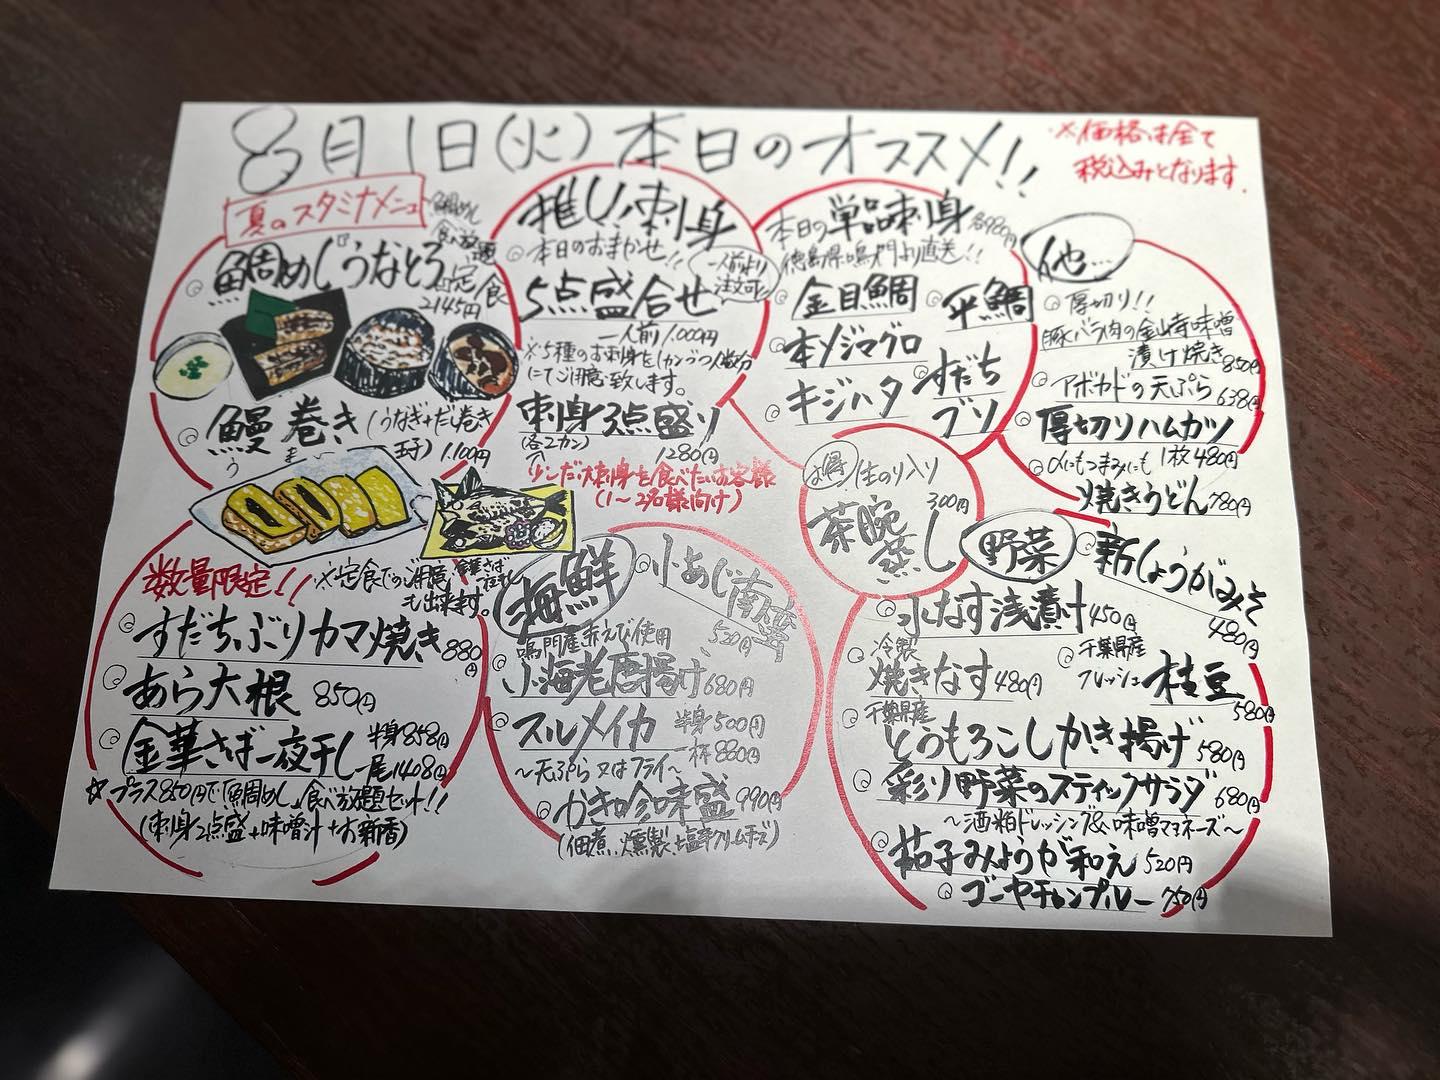 8月1日(火)本日のオススメ!!
※価格は全て
税込みとなります.
夏のスタミナメニュー
鯛めし
食べ放題
鯛めし『うなとろ』定食
2145円
鰻巻き(うなぎ+だし巻き
う まき
玉子) 1.100円
推し刺身
本日のおまかせ!!
5点盛合せ
一人前より
注文可!!
一人前1.000円
※5種のお刺身を1カンづつ人数分
にてご用意致します。
刺身3点盛り
(各2カン)
1280円
少しだけ刺身を食べたいお客様
(1〜2名様向け)
本日の単品刺身 各980円
徳島県鳴門より直送!!
金目鯛
平鯛
本ソジマグロ
キジハタ
すだち
ブリ
他…
厚切り!!
豚バラ肉の金山寺味噌
漬け焼き850円
アボカドの天ぷら638円
厚切りハムカツ
1枚480円
〆にもつまみにも
焼きうどん780円
お得 生のり入り
300円
茶碗蒸し
数量限定!!
※定食でのご用意
も出来ます。
すだちぶりカマ焼き880円
あら大根 850円
金華さば一夜干し 半身858円
一尾1408円
☆プラス850円で「鯛めし」食べ放題セット!!
(刺身2点盛+味噌汁+お新香)
海鮮
小あじ南蛮
520円
鳴門産赤えび使用
小海老唐揚げ680円
スルメイカ 半身500円
一杯880円
〜天ぷら又はフライ〜
かき珍味盛 990円
(佃煮、燻製、塩辛クリームチーズ)
野菜
新しょうがみそ
480円
水なす浅漬け450円
冷製
焼きなす480円
千葉県産
フレッシュ枝豆
580円
千葉県産
とうもろこしかき揚げ580円
彩り野菜のスティックサラダ680円
〜酒粕ドレッシング&味噌マヨネーズ〜
茄子みょうが和え520円
ゴーヤチャンプルー 750円